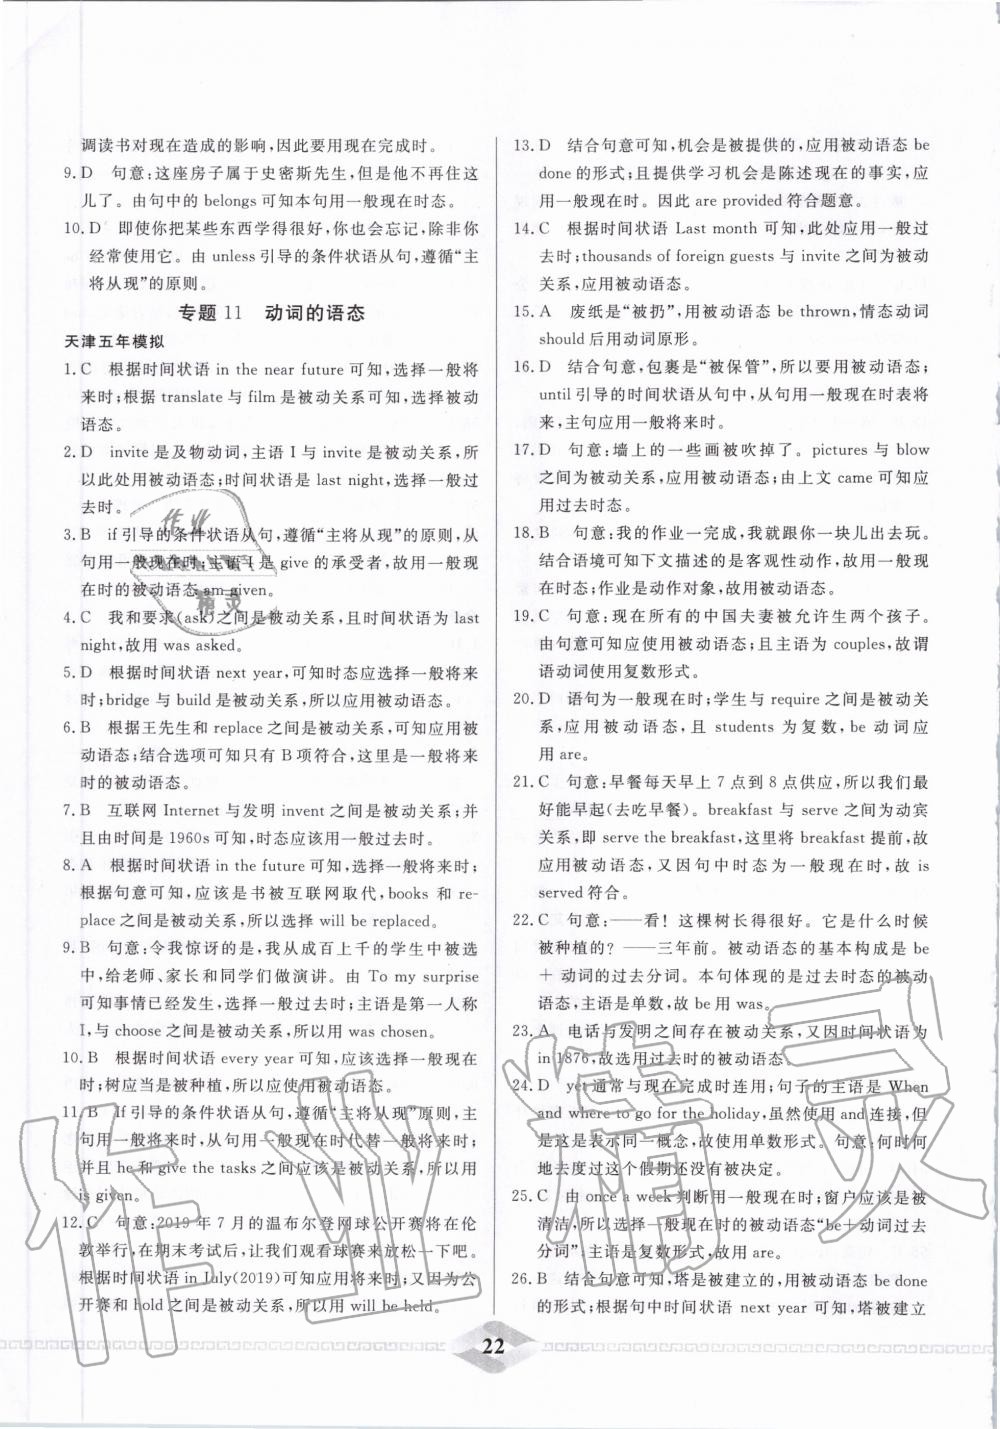 调读书对现在造成的影响,因此要用现在完成时。
9. D 句意:这座房子属于史密斯先生,但是他不再住这
儿了。由句中的 belongs 可知本句用一般现在时态。
10. D 即使你把某些东西学得很好,你也会忘记,除非你
经常使用它。由 unless 引导的条件状语从句,遵循“主
将从现”的原则。
专题 11 动词的语态
天津五年模拟
1. C 根据时间状语 in the near future 可知,选择一般将
来时;根据 translate 与 film 是被动关系可知,选择被动
语态。
2. D invite 是及物动词,主语 I 与 invite 是被动关系,所
以此处用被动语态;时间状语是 last night,选择一般过
去时。
3. B if 引导的条件状语从句,遵循“主将从现”的原则,从
句用一般现在时;主语 I 是 give 的承受者,故用一般现
在时的被动语态 am given。
4. C 我和要求(ask)之间是被动关系,且时间状语为 last
night,故用 was asked。
5. D 根据时间状语 next year,可知时态应选择一般将来
时;bridge 与 build 是被动关系,所以应用被动语态。
6. B 根据王先生和 replace 之间是被动关系,可知应用被
动语态;结合选项可知只有 B 项符合,这里是一般将来
时的被动语态。
7. B 互联网 Internet 与发明 invent 之间是被动关系;并
且由时间是 1960s 可知,时态应该用一般过去时。
8. A 根据时间状语 in the future 可知,选择一般将来时;
根据句意可知,应该是书被互联网取代,books 和 re-
place 之间是被动关系,所以选择 will be replaced。
9. B 句意:令我惊讶的是,我从成百上千的学生中被选
中,给老师、家长和同学们做演讲。由 To my surprise
可知事情已经发生,选择一般过去时;主语是第一人称
I,与 choose 之间是被动关系,所以用 was chosen。
10. B 根据时间状语 every year 可知,应该选择一般现在
时;树应当是被种植,所以应使用被动语态。
11. B If 引导的条件状语从句,遵循“主将从现”原则,主
句用一般将来时,从句用一般现在时代替一般将来时;
并且 he 和 give the tasks 之间应该是被动关系,所以用
is given。
12. C 句意:2019 年 7 月的温布尔登网球公开赛将在伦
敦举行,在期末考试后,让我们观看球赛来放松一下吧。
根据时间状语 in July(2019)可知应用将来时;又因为公
开赛和 hold 之间是被动关系,所以用 will be held。
13. D 结合句意可知,机会是被提供的,应用被动语态 be
done 的形式;且提供学习机会是陈述现在的事实,应
用一般现在时。因此 are provided 符合题意。
14. C 根据时间状语 Last month 可知,此处应用一般过
去时;thousands of foreign guests 与 invite 之间为被动
关系,应用被动语态。
15. A 废纸是“被扔”,用被动语态 be thrown,情态动词
should 后用动词原形。
16. D 结合句意,包裹是“被保管”,所以要用被动语态;
until 引导的时间状语从句中,从句用一般现在时表将
来,主句应用一般将来时。
17. D 句意:墙上的一些画被吹掉了。pictures 与 blow
之间为被动关系,应用被动语态;由上文 came 可知应
用过去时态。
18. B 句意:我的作业一完成,我就跟你一块儿出去玩。
结合语境可知下文描述的是客观性动作,故用一般现
在时态;作业是动作对象,故用被动语态。
19. C 句意:现在所有的中国夫妻被允许生两个孩子。
由句意可知应使用被动语态;且主语为 couples,故谓
语动词使用复数形式。
20. D 语句为一般现在时;学生与 require 之间是被动关
系,应用被动语态,且 students 为复数,be 动词应
用 are。
21. C 句意:早餐每天早上 7 点到 8 点供应,所以我们最
好能早起(去吃早餐)。breakfast 与 serve 之间为动宾
关系,即 serve the breakfast,这里将 breakfast 提前,故
应用被动语态,又因句中时态为一般现在时,故 is
served 符合。
22. C 句意:——看!这棵树长得很好。它是什么时候
被种植的?——三年前。被动语态的基本构成是 be
+ 动词的过去分词。本句体现的是过去时态的被动
语态,主语是单数,故 be 用 was。
23. A 电话与发明之间存在被动关系,又因时间状语为
in 1876,故选用过去时的被动语态。
24. D yet 通常与现在完成时连用;句子的主语是 When
and where to go for the holiday,虽然使用 and 连接,但
是这是表示同一概念,故使用单数形式。句意:何时何
地去度过这个假期还没有被决定。
25. C 由 once a week 判断用一般现在时;窗户应该是被
清洁,所以选择一般现在时的被动语态“be+动词过去
分词”,主语是复数形式,故用 are。
26. B 结合句意可知,塔是被建立的,用被动语态 be done
的形式;根据句中时间状语 next year 可知,塔被建立
22
作业
精灵
作业精灵